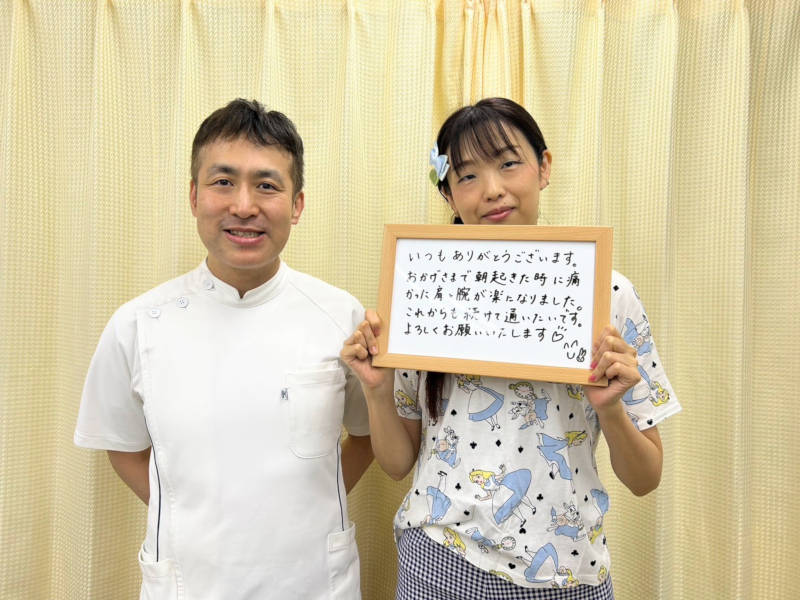 いつもありがとうございます。
おかげさまで朝起きた時に痛
かった肩・腕が楽になりました。
これからも続けて通いたいです。
よろしくお願いいたします♡